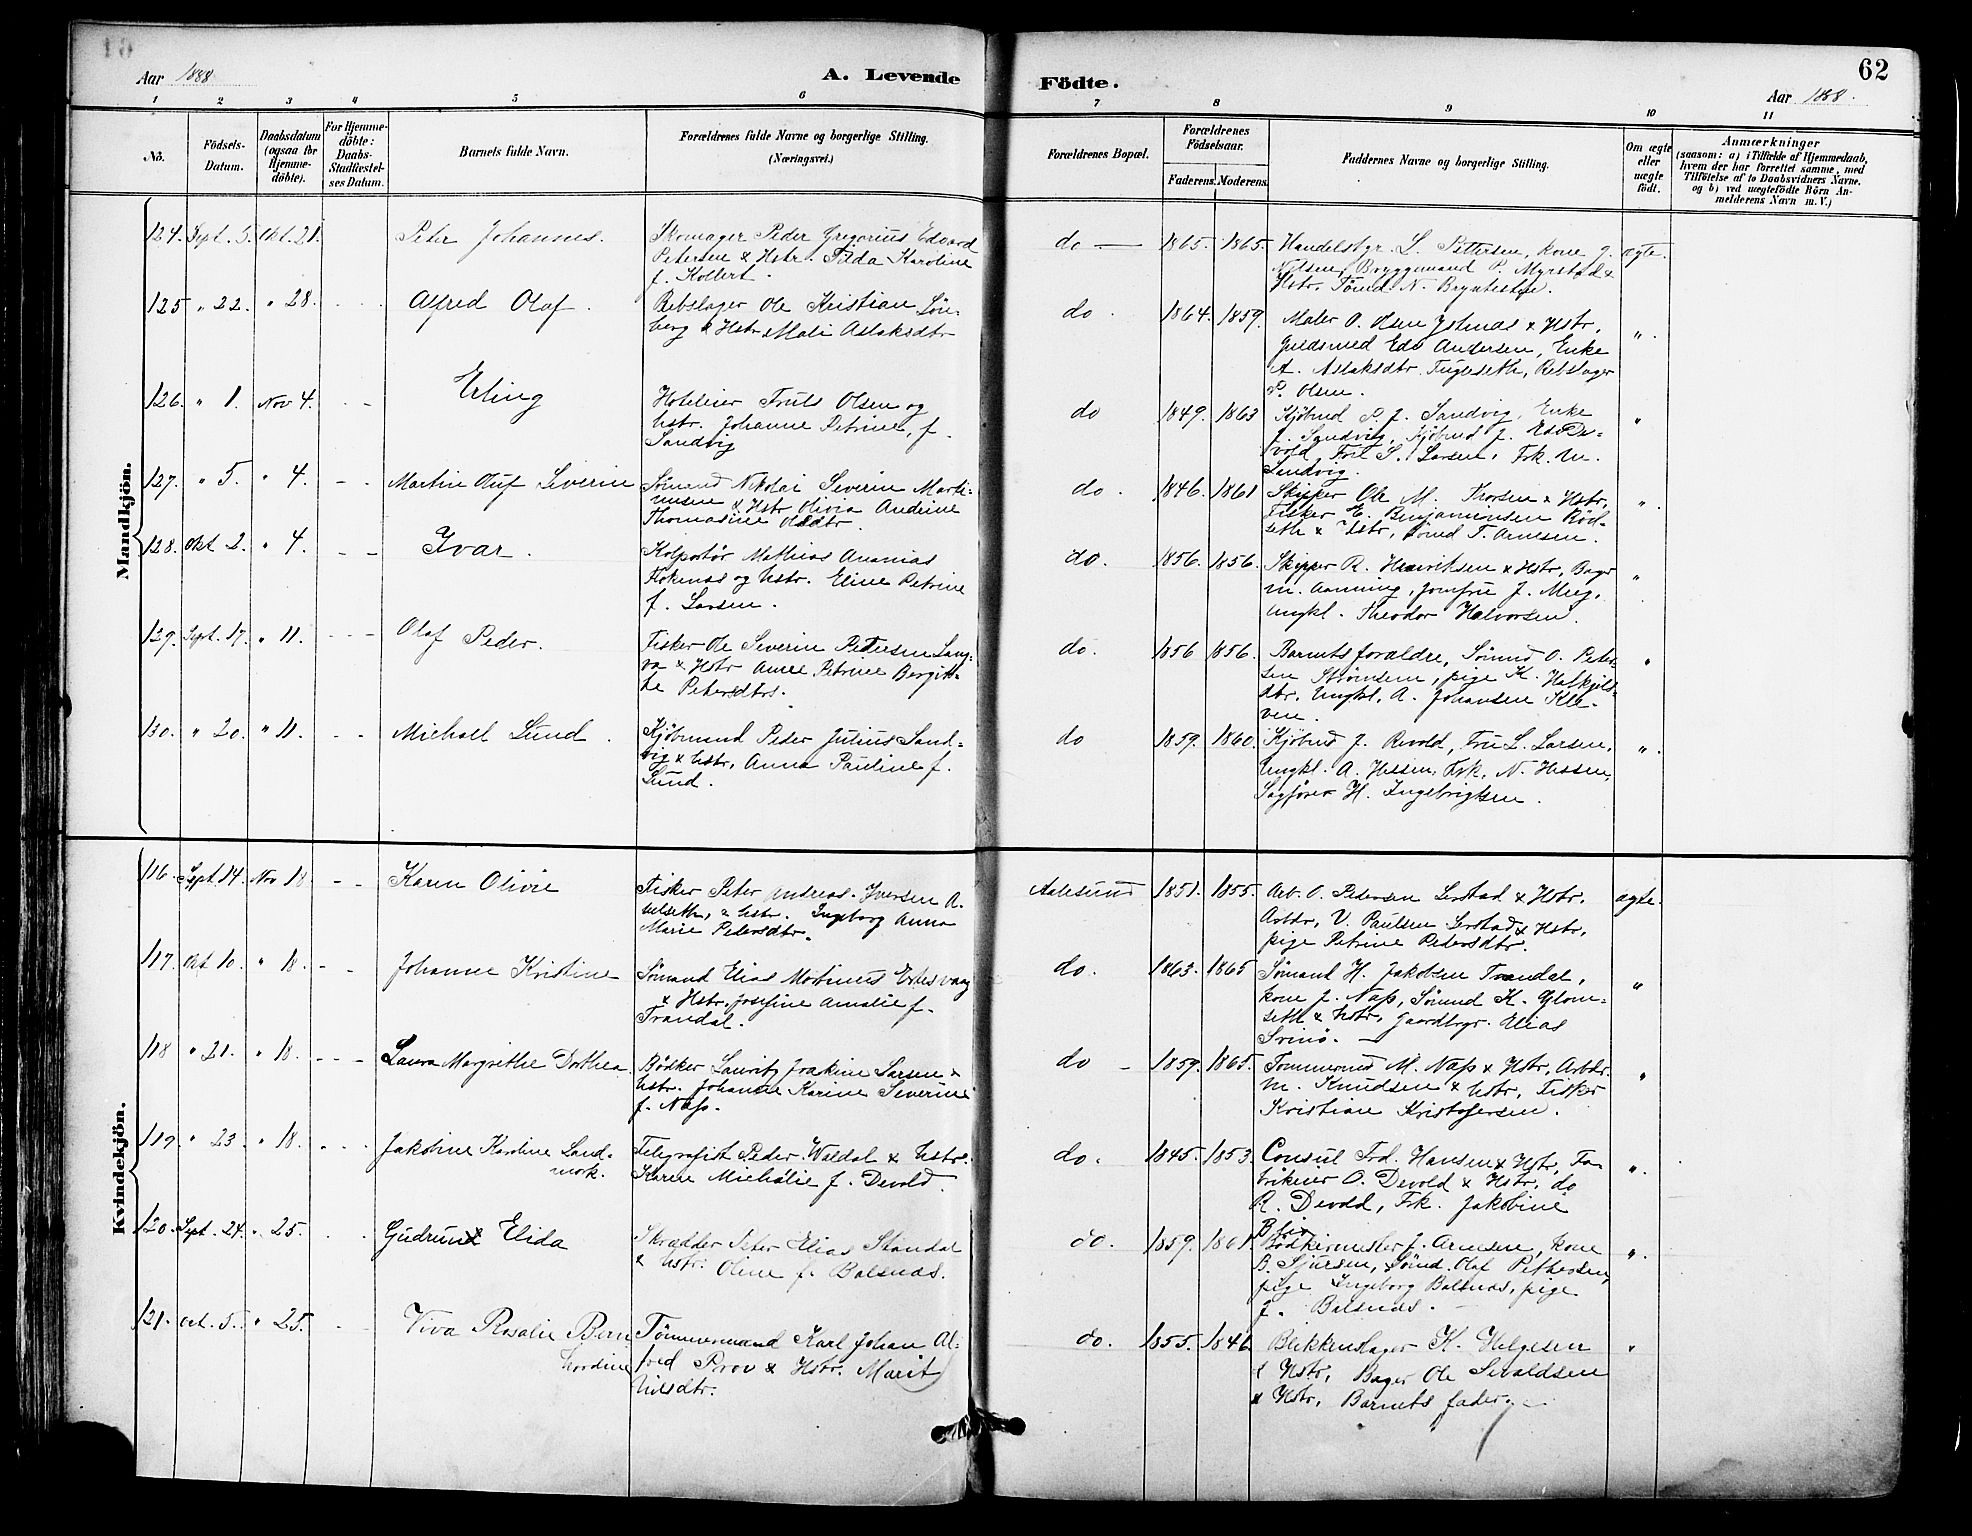 Aar 1888
A. Levende
Födte.
Aar 1888.
62
1 2 3 4 5 6 7 8 9 10 11
No.
Födsels-
Datum.
Daabsdatum
(ogsaa for
Hjemme-
döbte).
For Hjemme-
döbte:
Daabs-
Stadfæstel-
ses Datum.
Barnets fulde Navn.
Forældrenes fulde Navne og borgerlige Stilling.
(Næringsvei.)
Forældrenes Bopæl.
Forældrenes
Födselsaar.
Faderens. Moderens.
Faddernes Navne og borgerlige Stilling.
Om ægte
eller
uægte
födt.
Anmærkninger
(saasom: a) i Tilfælde af Hjemmedaab,
hvem der har forrettet samme, med
Tilföielse af to Daabsvidners Navne,
og b) ved uægtefödte Börn An-
melderens Navn m. V.)
Mandkjön.
124. Sept. 5. Okt. 21. Peter Johannes.
Skomager Peder Gregorius Edvard
Petersen & Hstr. Tilda Karoline
f. Kollert.
do — 1865. 1865.
Handelsbgr. L. Pettersen, kone J.
Nilsen, Bryggemand P. Myrstad &
Hstr, Tömd. N. Bryntestøe.
ægte.
125 " 22. " 28. - - Alfred Olaf.
Rebslager Ole Kristian Lön-
berg & Hstr. Mali Aslaksdtr
do. 1864. 1859.
Maler O. Olsen Ystnæs & Hstr,
Guldsmed Edv Andersen, Enke
A. Aslaksdtr. Fugleseth, Rebslager
P. Olsen.
"
126. " 1. Nov 4. - - Erling
Hoteleier Truls Olsen og
hstr. Johanne Petrine, f.
Sandvig
do 1849. 1863
Kjöbmd P. J. Sandvig, Enke
J. Sandvig, Kjöbmd J. Ed. De-
vold, Frk S. Larsen, Frk. M.
Sandvig.
"
127. " 5. " 4. - - Martin Oluf Severin
Sömand Nikolai Severin Marti-
nusen & Hstr Olivia Andrine
Thomasine Olsdtr.
do. 1846. 1861
Skipper Ole M. Thorsen & Hstr,
Fisker E. Benjaminsen Röd-
seth & Hstr, Sömd T. Arnesen.
"
128. Okt 2. " 4. - - Ivar.
Kolportör Mathias Ananias
Flokenæs og hstr. Eline Petrine
f. Larsen.
do. 1856. 1856.
Skipper R. Henriksen & Hstr, Bager
M. Aanning, jomfru J. Myg,
Ungkl. Theodor Halvorsen.
"
129. Sept. 17. " 11. - - - Olaf Peder.
Fisker Ole Severin Petersen Lang-
va & Hstr Anne Petrine Bergit-
he Petersdtr.
do. 1856 1856.
Barnets forældre, Sömnd O. Peter-
sen Strömsem, pige K. Halkjels-
dtr, Ungkl. A. Johansen Kle-
ven.
"
130. " 20. " 11. - - Michael Lund.
Kjöbmand Peder Julius Sand-
vig & hstr, Anna Pauline f.
Lund.
do 1859. 1860.
Kjöbmd J. Revold, Fru L. Larsen,
Ungkl. A. Hessen, Frk. N. Hessen,
Sagförer H. Ingebrigtsen.
"
Kvindekjön.
116. Sept. 14. Nov 18 - - Karen Olivie
Fisker Peter Andreas Iversen A-
selseth, & hstr. Ingeborg Anna
Marie Petersdtr.
Aalesund 1851. 1855.
Arb. O. Pedersen Lerstad & Hstr,
Arbdr, V. Paulsen Lerstad & Hstr,
pige Petrine Petersdtr.
ægte.
117. Okt 10. " 18. - - Johanne Kristine
Sömand Elias Martinus Eikesvaag
& Hstr. Josefine Amalie f.
Trandal.
do. 1863. 1865
Sömand H. Jakobsen Trandal,
kone J. Nass, Sömnd K. Glom-
seth & hstr, Gaardbrgr. Elias
Svinö. —
"
118 " 21. " 18. - - - Laura Margrethe Dorthea.
Bödker Lauritz Joakim Larsen &
hstr. Johanne Karine Severine
f. Nass.
do - 1859. 1865.
Tømmermd M. Nass & Hstr, Arbdr.
M. Knudsen & hstr, Fisker
Kristian Kristofersen.
"
119. " 23. " 18. - - - Jakobine Karoline Land-
mark.
Telegrafist Peder Waldal & hstr.
Karen Michalie f. Devold.
do. 1845. 1853.
Consul Frd. Hansen & Hstr, Fa-
brikeier O. Devold & Hstr, do
R. Devold, Frk. Jakobine
"
120. Sept. 24. " 25. - - Gudrun Elida
Skrædder Peter Elias Standal
& hstr. Oline f. Balsnæs.
do. 1859. 1861.
Bödkermester J. Arnesen, kone
B. Sjursen, Sömd. Olaf Pettersen,
pige Ingeborg Balsnæs, pige
J. Balsnæs. —
"
121. Oct. 5. " 25. - - Viva Rosalie Bern
hardine
Tömmermand Karl Johan Al-
fred Prov & Hstr. Marit
Nilsdtr.
do. 1855. 1846
Blikkenslager K. Helgesen
& Hstr, Bager Ole Sivaldsen
& Hstr, Barnets fader. —
"